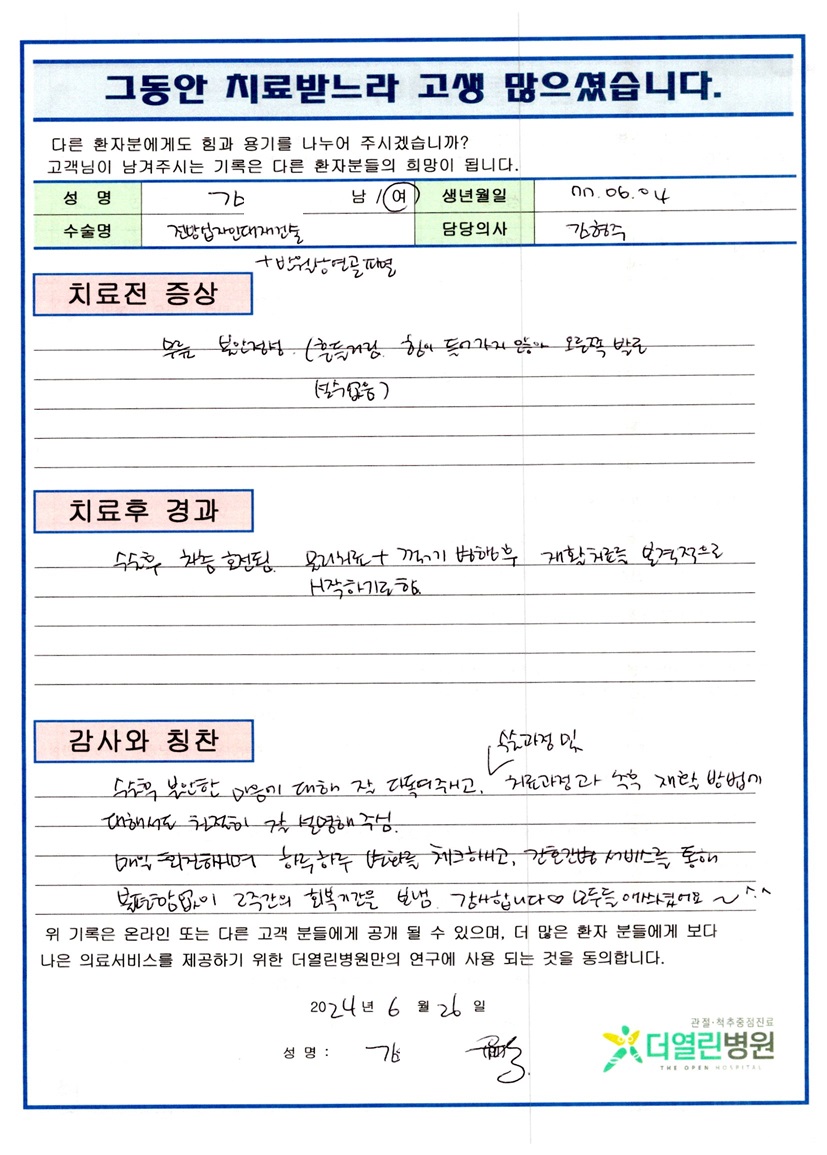 그동안 치료받느라 고생 많으셨습니다.
다른 환자분에게도 힘과 용기를 나누어 주시겠습니까?
고객님이 남겨주시는 기록은 다른 환자분들의 희망이 됩니다.
성 명 김 남 / 여 생년월일 77.06.04
수술명 전방십자인대재건술 담당의사 김형주
+ 반월상연골파열
치료전 증상
무릎 불안정성. (흔들거림. 힘이 들어가지 않아 오른쪽 발로
치료후 경과
수술후 차츰 호전됨. 물리치료 + 꺾기 병행후 재활치료를 본격적으로
시작하기로 함.
감사와 칭찬
수술과정 및
수술후 불안한 마음에 대해 잘 다독여주시고, 치료과정과 재활 방법에
대해서도 친절히 잘 설명해 주심.
매일 회진하시며 하루하루 변화를 체크하시고, 간호간병 서비스를 통해
불편함없이 2주간의 회복기간을 보냄. 감사합니다♡ 모두들 애쓰셨어요 ~^^
위 기록은 온라인 또는 다른 고객 분들에게 공개 될 수 있으며, 더 많은 환자 분들에게 보다
나은 의료서비스를 제공하기 위한 더열린병원만의 연구에 사용 되는 것을 동의합니다.
2024년 6 월 26 일
성 명 : 김
관절·척추중점진료
더열린병원
THE OPEN HOSPITAL